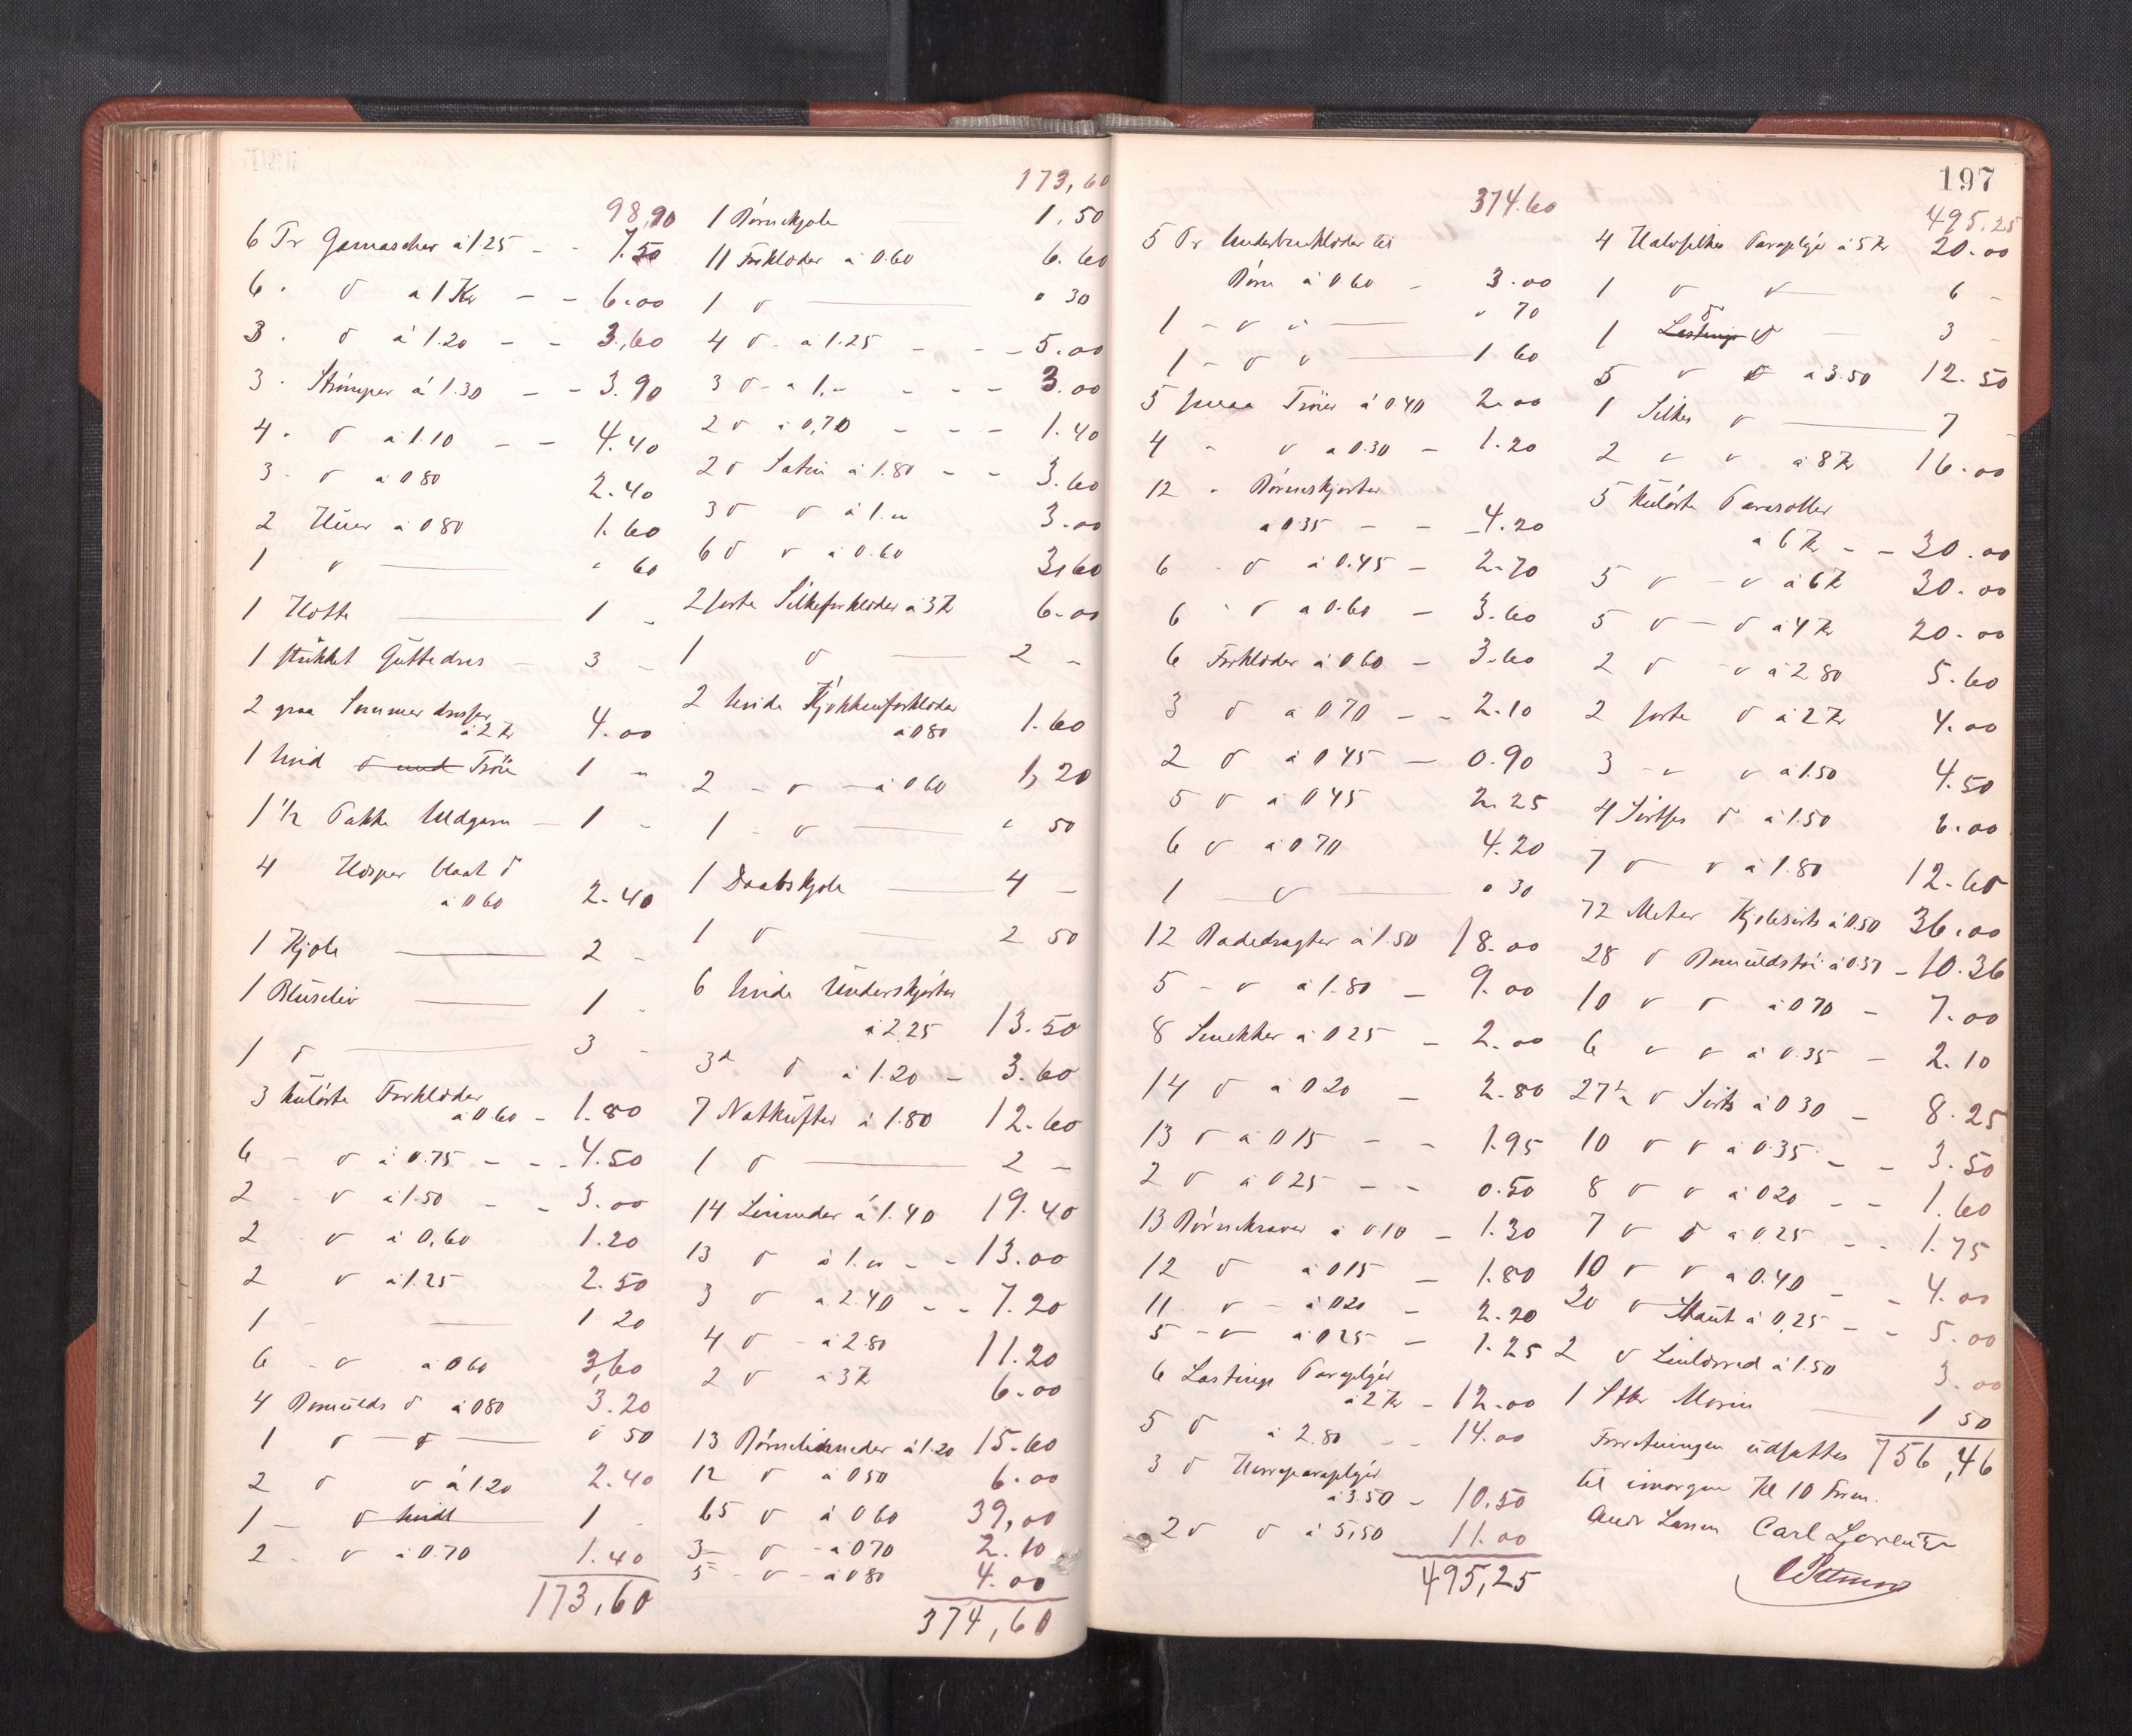 98,90
6 Pr Gamascher á 1.25 - - 7.50
6 . d á 1 Kr - - 6.00
3 . d á 1.20 - - 3.60
3 . Strömper á 1.30 - - 3.90
4 . d á 1.10 - - 4.40
3 . d á 0 80 2.40
2 Huer á 0 80 1.60
1 d " 60
1 Hette 1 -
1 strikket Guttedres - 3 -
2 graa Sommer dresser
á 2 Kr 4.00
1 hvid Tröie 1 "
1 1/2 Pakke Uldgarn - 1 -
4 Hesper blaat d
á 0 60 2.40
1 Kjole 2 -
1 Bluseliv 1 -
1 d 3 -
3 kulörte Forklæder
á 0.60 - 1.80
6 - d á 0.75 - - 4.50
2 - d á 1.50 - - 3.00
2 - d á 0.60 1.20
2 d á 1.25 2.50
1 - 1 20
6 - d á 0 60 3,60
4 Bomulds d á 0 80 3.20
1 d - d " 50
2 d d á 1.20 2.40
1 - d hvidt 1 -
2 - d á 0.70 1.40
173,60
173,60
1 Börnekjole 1.50
11 Forklæder á 0.60 6.60
1 d " 30
4 d - á 1.25 - - - 5.00
3 d - á 1." - - - 3.00
2 d á 0,70 - - - 1.40
2 d Satin á 1.80 - - 3.60
3 d d á 1." 3.00
6 d d á 0.60 3,60
2 sorte Silkeforklæder á 3 Kr 6.00
1 d 2 -
2 hvide Kjökkenforklæder
á 0 80 1.60
2 - d - á 0 60 1,20
1 - d " 50
1 Daabskjole 4 -
1 d 2 50
6 hvide Underskjörter
á 2.25 13.50
3 d á 1.20 - 3.60
7 Natkufter á 1.80 12.60
1 d 2 -
14 Linneder á 1.40 19.40
13 d á 1." - - 13.00
3 d á 2.40 - - 7.20
4 d - á 2.80 11.20
2 d á 3 Kr 6.00
13 Börnelinneder á 1.20 15.60
12 d á 0 50 6.00
65 d á 0 60 39,00
3 - d - á 0 70 2.10
5 - d - á 0 80 4.00
374,60
197
374.60
5 Pr Underbenklæder til
Börn á 0.60 - 3.00
1 - d d " 70
1 - d d 1 60
5 smaa Tröier á 0.40 2.00
4 - d á 0.30 - 1.20
12 - Börneskjorter
á 0.35 - - 4.20
6 - d á 0.45 - 2.70
6 - d á 0.60 - 3.60
6 Forklæder á 0 60 - 3.60
3 d á 0 70 - - 2.10
2 d á 0 45 - 0.90
5 d á 0 45 2.25
6 d á 0 70 4.20
1 - d " 30
12 Badedragter á 1.50 18.00
5 - d á 1.80 - 9.00
8 Smekker á 0 25 - 2.00
14 d á 0 20 - 2.80
13 d á 0 15 - - 1.95
2 d á 0 25 - - 0.50
13 Börnekraver á 0 10 - 1.30
12 d á 0 15 - 1.80
11 d - á 0 20 - 2.20
5 - d á 0 25 - 1.25
6 Lastings Paraplyer
á 2 Kr - 12.00
5 d á 2.80 - - 14.00
3 d Herreparaplyer
á 3.50 - 10.50
2 d d á 5,50 11.00
495,25
495.25
4 Halvsilkes Paraplyer á 5 Kr 20.00
1 d d 6 -
1 Lastings d 3 -
5 d d á 3.50 12.50
1 Silkes d 7 -
2 d d á 8 Kr 16.00
5 kulörte Parasoller
á 6 Kr - - 30.00
5 d - d á 6 Kr 30.00
5 d - d á 4 Kr 20.00
2 d - d á 2 80 5.60
2 sorte d á 2 Kr 4.00
3 - d d á 1.50 4.50
4 Sirtses d á 1.50 6.00
7 d d á 1.80 12.60
72 Meter Kjolesirts á 0.50 36.00
28 d Bomuldstöi á 0.37 - 10.36
10 d d á 0 70 - 7.00
6 d d á 0.35 - 2.10
27 1/2 d Sirts á 0 30 - 8.25
10 d d á 0.35 - - 3.50
8 d d á 0 20 - - 1.60
7 d d á 0.25 - - 1.75
10 d d á 0.40 - - 4.00
20 d Skaut á 0,25 - - 5.00
2 d Linlærred á 1.50 3.00
1 Stk 1 50
756,46
Forretningen udsattes
til imorgen Kl 10 Form.
Andr Larsen Carl Lorentz